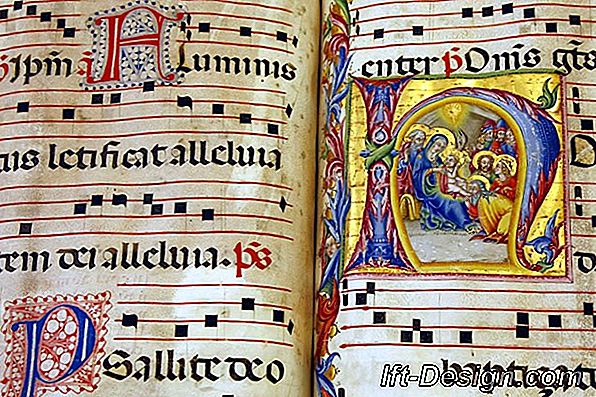 Ipm̄ Aluminis
tus letificat alleluia
tem dei alleluia. p̄s
Psallite deo
enter p̄s Onīs
H
lft-Design.com